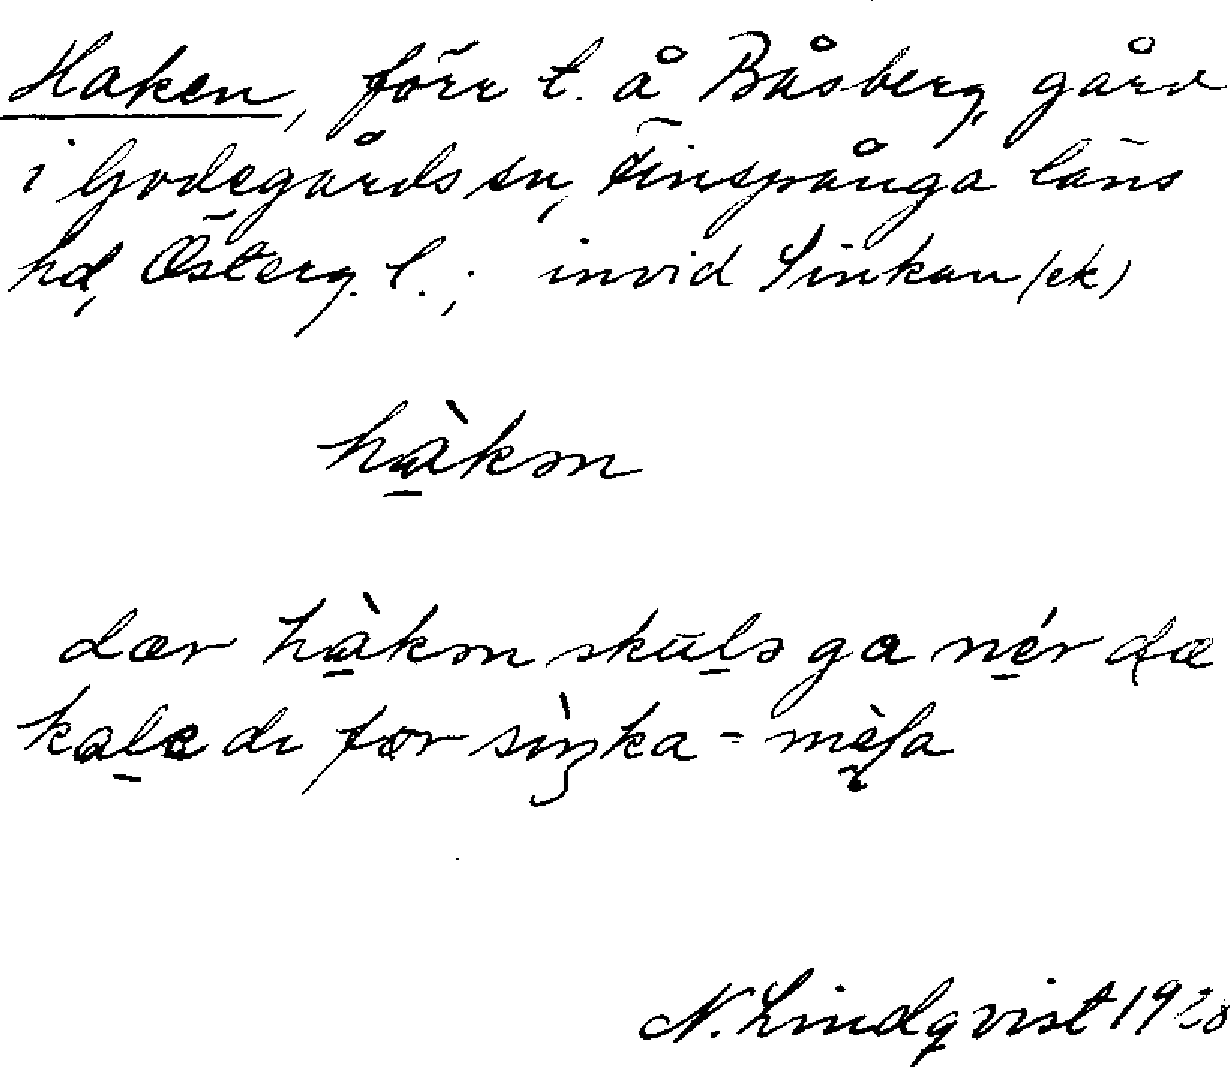 Haken, förr t. å Båsberg, gård
i Godegårds sn, Finspånga läns
hd, Österg. l.; invid Sinkan (ek)
hàkən
dær hàkən skulə ga nér dæ
kala di før siŋka-
N. Lindqvist 1928